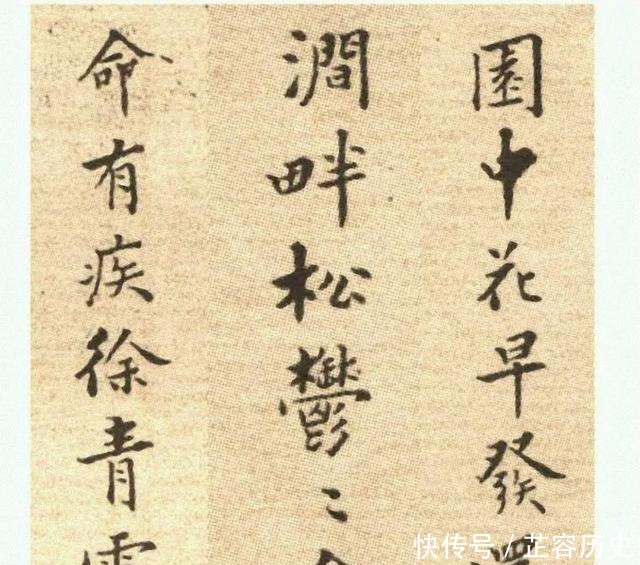 園中花早發
澗畔松鬱〻
命有疾徐青
快传号 / 芷容历史